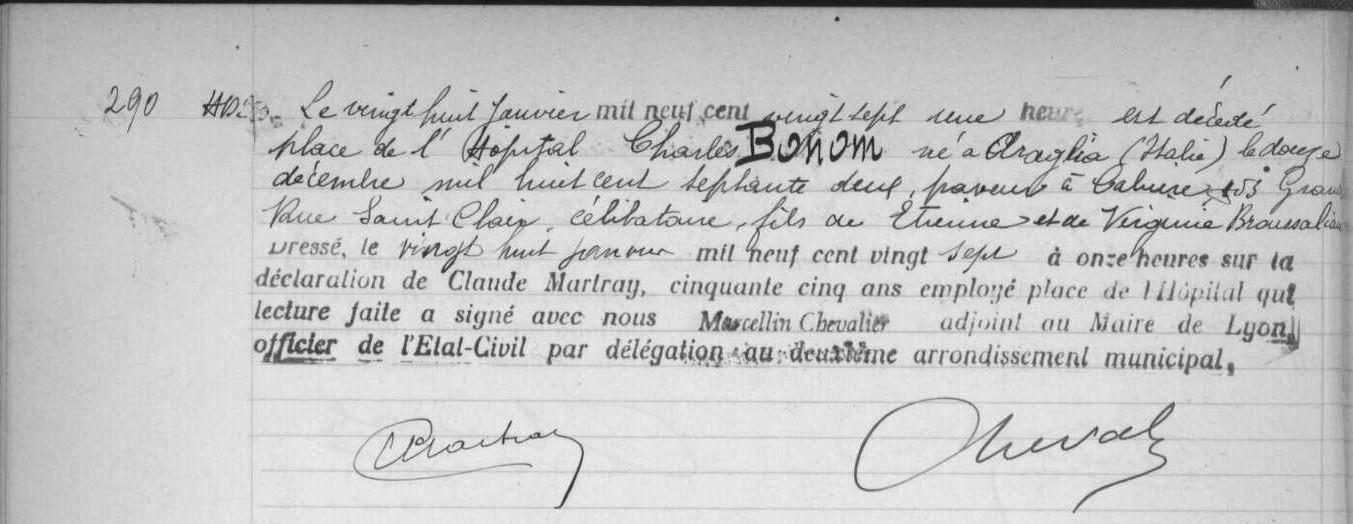 290 HD. Le vingt huit Janvier mil neuf cent vingt sept une heure est décédé
place de l'Hôpital Charles BONOM né à Araglia (Italie) le douze
décembre mil huit cent septante deux, paveur à Caluire 155 Grande
Rue Saint Clair, célibataire, fils de Etienne et de Virginie Broussalian
Dressé, le vingt huit janvier mil neuf cent vingt sept à onze heures sur la
déclaration de Claude Martray, cinquante cinq ans employé place de l'Hôpital qui
lecture faite a signé avec nous Marcellin Chevalier adjoint au Maire de Lyon,
officier de l'Etat-Civil par délégation au deuxième arrondissement municipal,
CMartray Cheval